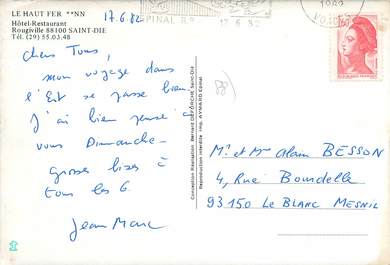 LE HAUT FER **NN
Hôtel-Restaurant
Rougiville 88100 SAINT-DIE
Tél. (29) 55.03.48
17.6.82
Chers Tous,
mon voyage dans
l'Est se passe bien
J'ai bien pensé à
vous Dimanche
grosses bises à
tous les 6
Jean Marc
Conception Réalisation Bernard DEFORCHE Saint-Dié
Reproduction interdite Imp. AYMARD Epinal
EPINAL RP
17-6 82
88
Mr et Mme Alain BESSON
4, Rue Bourdelle
93150 Le BLANC MESNIL